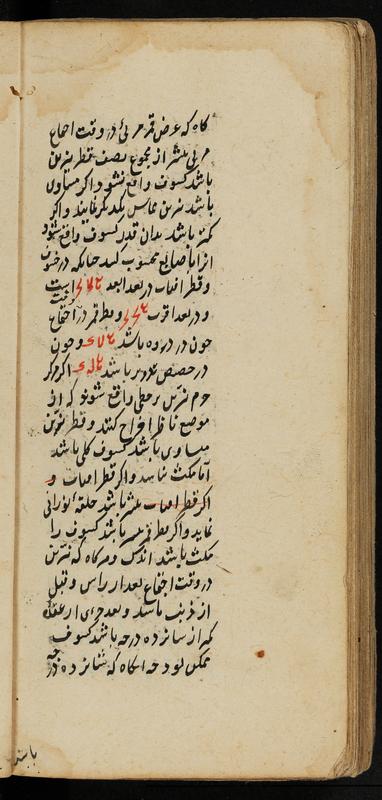 گاه که عرض قمر مرئی در وقت اجماع
مرئی بیشتر از مجموع نصف قطر نیرین
باشد کسوف واقع نشود و اگر مساوی
باشد نیرین مماس یکدیگر نمایند و اگر
کمتر باشد بدان قدر کسوف واقع شود
انرا باصابع محسوب کنند چنانکه در خسوف
و قطر افتاب در بعد ابعد است
و در بعد اقرب و قطر قمر در اجتماع
چون در ذروه باشد و چون
در حضیض تدویر باشد اگر مرکز
جرم نیرین بر خطی واقع شوند که از
موضع ناظر اخراج کنند و قطر نیرین
مساوی باشد کسوف کلی باشد
اما مکث نباشد و اگر قطر افتاب
بیشتر باشد حلقه نورانی
نماید و اگر قطر قمر بیشتر باشد کسوف را
مکث باشد اندکی و هرگاه که نیرین
در وقت اجتماع بعد از راس و قبل
از ذنب باشد و بعد جزء از عقده
کم از شانزده درجه باشد کسوف
ممکن بود چه انگاه که شانزده درجه
باشد